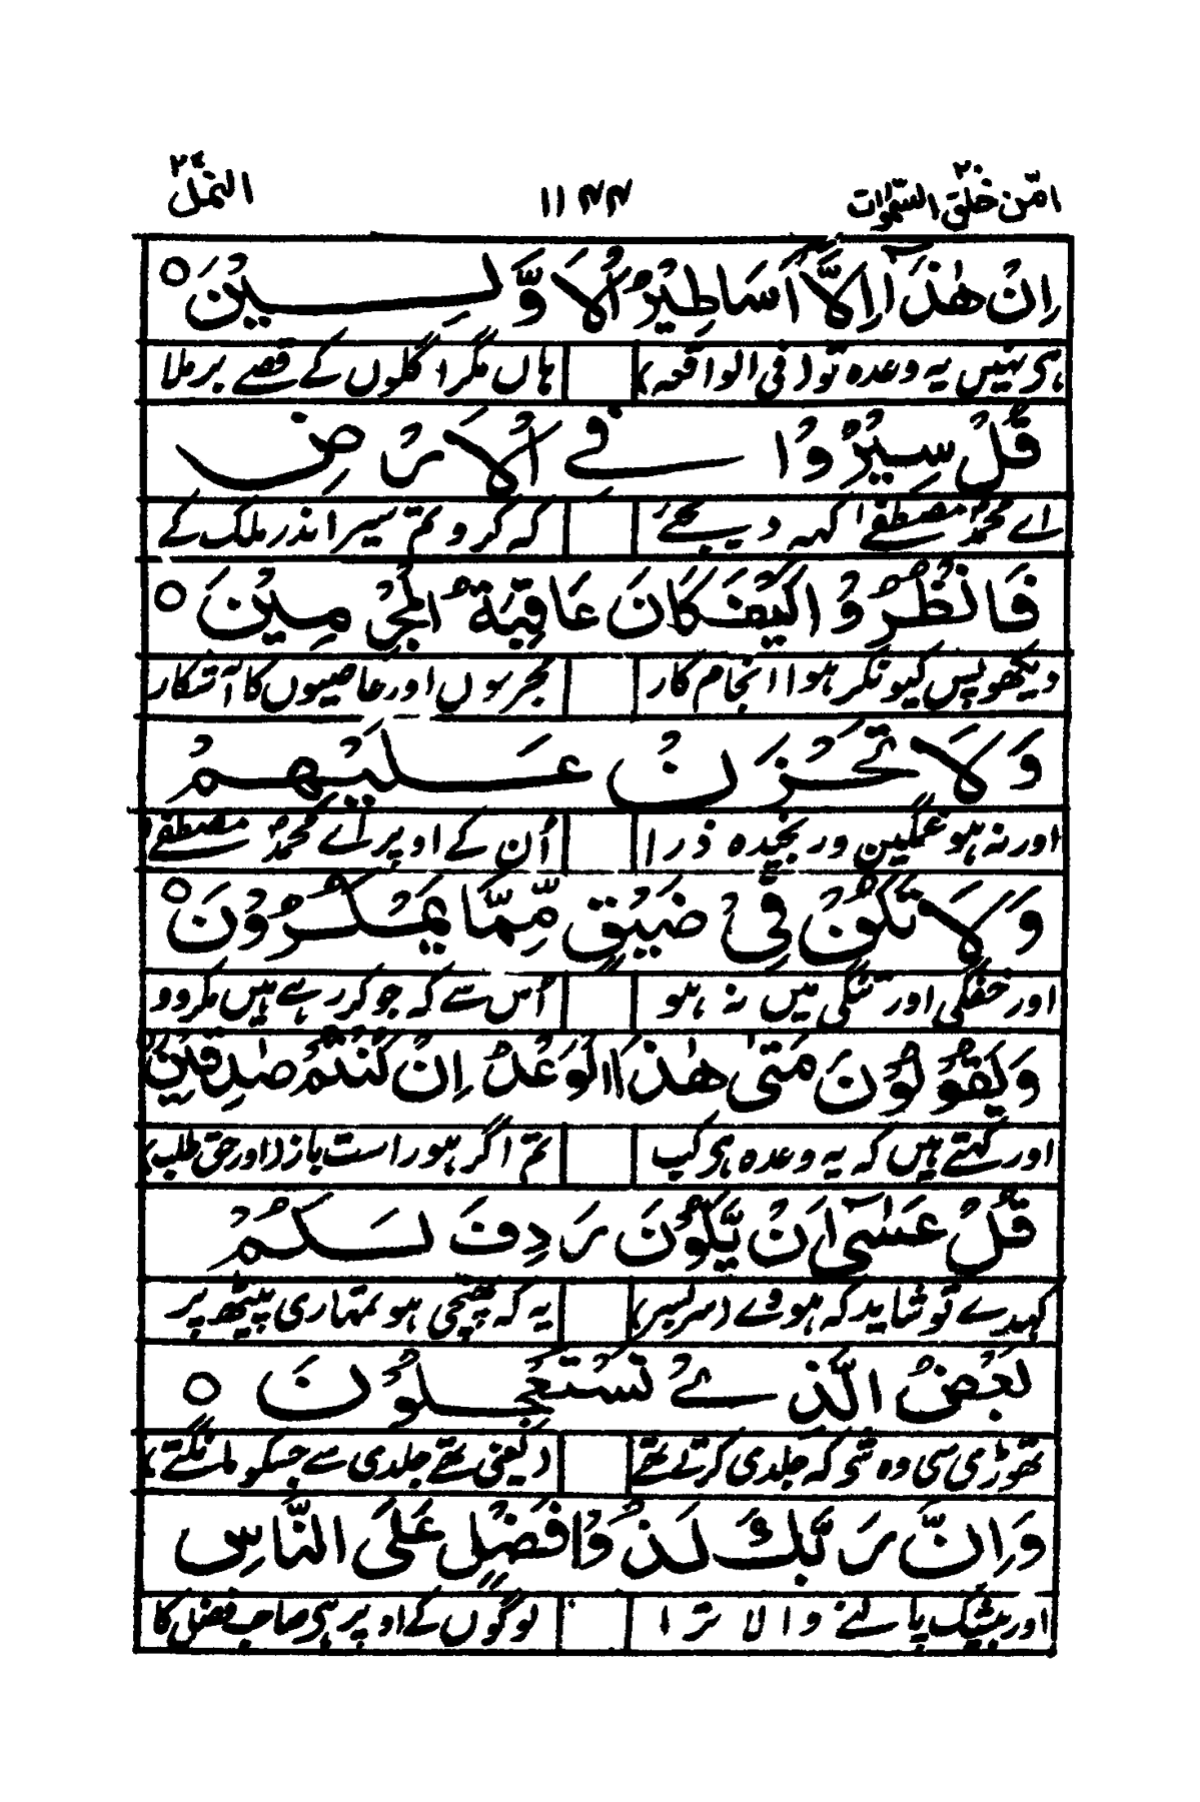 امّن خلق السّمٰوات ۲۰ ۱۱۴۴ النمل ۲۷
اِنْ هٰذَآ اِلَّآ اَسَاطِيْرُ الْاَوَّلِيْنَ ○
ہی نہیں یہ وعدہ تو (فی الواقعہ) ہاں مگر اگلوں کے قصے برملا
قُلْ سِيْرُوْا فِے الْاَرْضِ
اے محمدؐ مصطفےٰ کہہ دیجئے کہ کرو تم سیر اندر ملک کے
فَانْظُرُوْا كَيْفَ كَانَ عَاقِبَةُ الْمُجْرِمِيْنَ ○
دیکھو پس کیونکر ہوا انجام کار مجرموں اور عاصیوں کا آشکار
وَلَا تَحْزَنْ عَلَيْهِمْ
اور نہ ہو غمگین ور نجیدہ ذرا اُن کے اوپر اے محمدؐ مصطفےٰ
وَلَا تَكُوْنْ فِىْ ضَيْقٍ مِّمَّا يَمْكُرُوْنَ ○
اور خفگی اور تنگی میں نہ ہو اُس سے کہ جو کر رہے ہیں مکر وو
وَيَقُوْلُوْنَ مَتٰى هٰذَا الْوَعْدُ اِنْ كُنْتُمْ صٰدِقِيْنَ
اور کہتے ہیں کہ یہ وعدہ ہی کب تم اگر ہو راست باز (اور حق طلب)
قُلْ عَسٰٓى اَنْ يَّكُوْنَ رَدِفَ لَكُمْ
کہدے تو شاید کہ ہووے (سر بسر) یہ کہ پہنچی ہو تمہاری پیٹھ پر
بَعْضُ الَّذِےْ تَسْتَعْجِلُوْنَ ○
تھوڑی سی وہ شی کہ جلدی کرتے تھے (یعنی تھے جلدی سے جسکو مانگتے)
وَاِنَّ رَبَّكَ لَذُوْ فَضْلٍ عَلَى النَّاسِ
اور بیشک پالنے والا ترا لوگوں کے اوپر ہی صاحب فضل کا